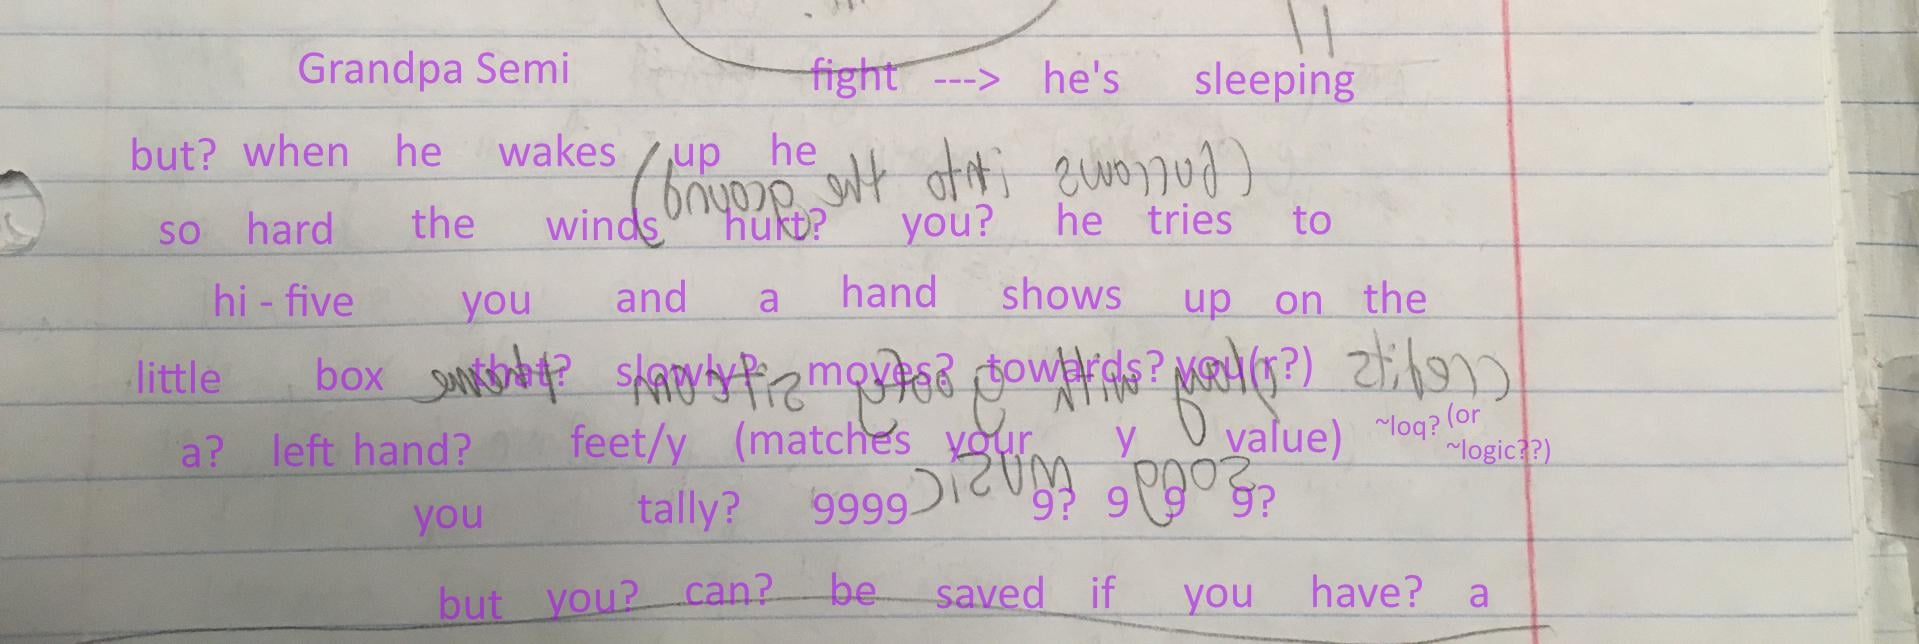 Grandpa Semi fight ---> he's sleeping
but? when he wakes up he
(burrows into the ground)
so hard the winds hurt? you? he tries to
hi - five you and a hand shows up on the
little box that? slowly? moves? towards? you(r?)
credits play with goofy sitcom theme
a? left hand? feet/y (matches your y value) ~loq? (or ~logic??)
music
you tally? 9999 9? 9 9 9?
but you? can? be saved if you have? a